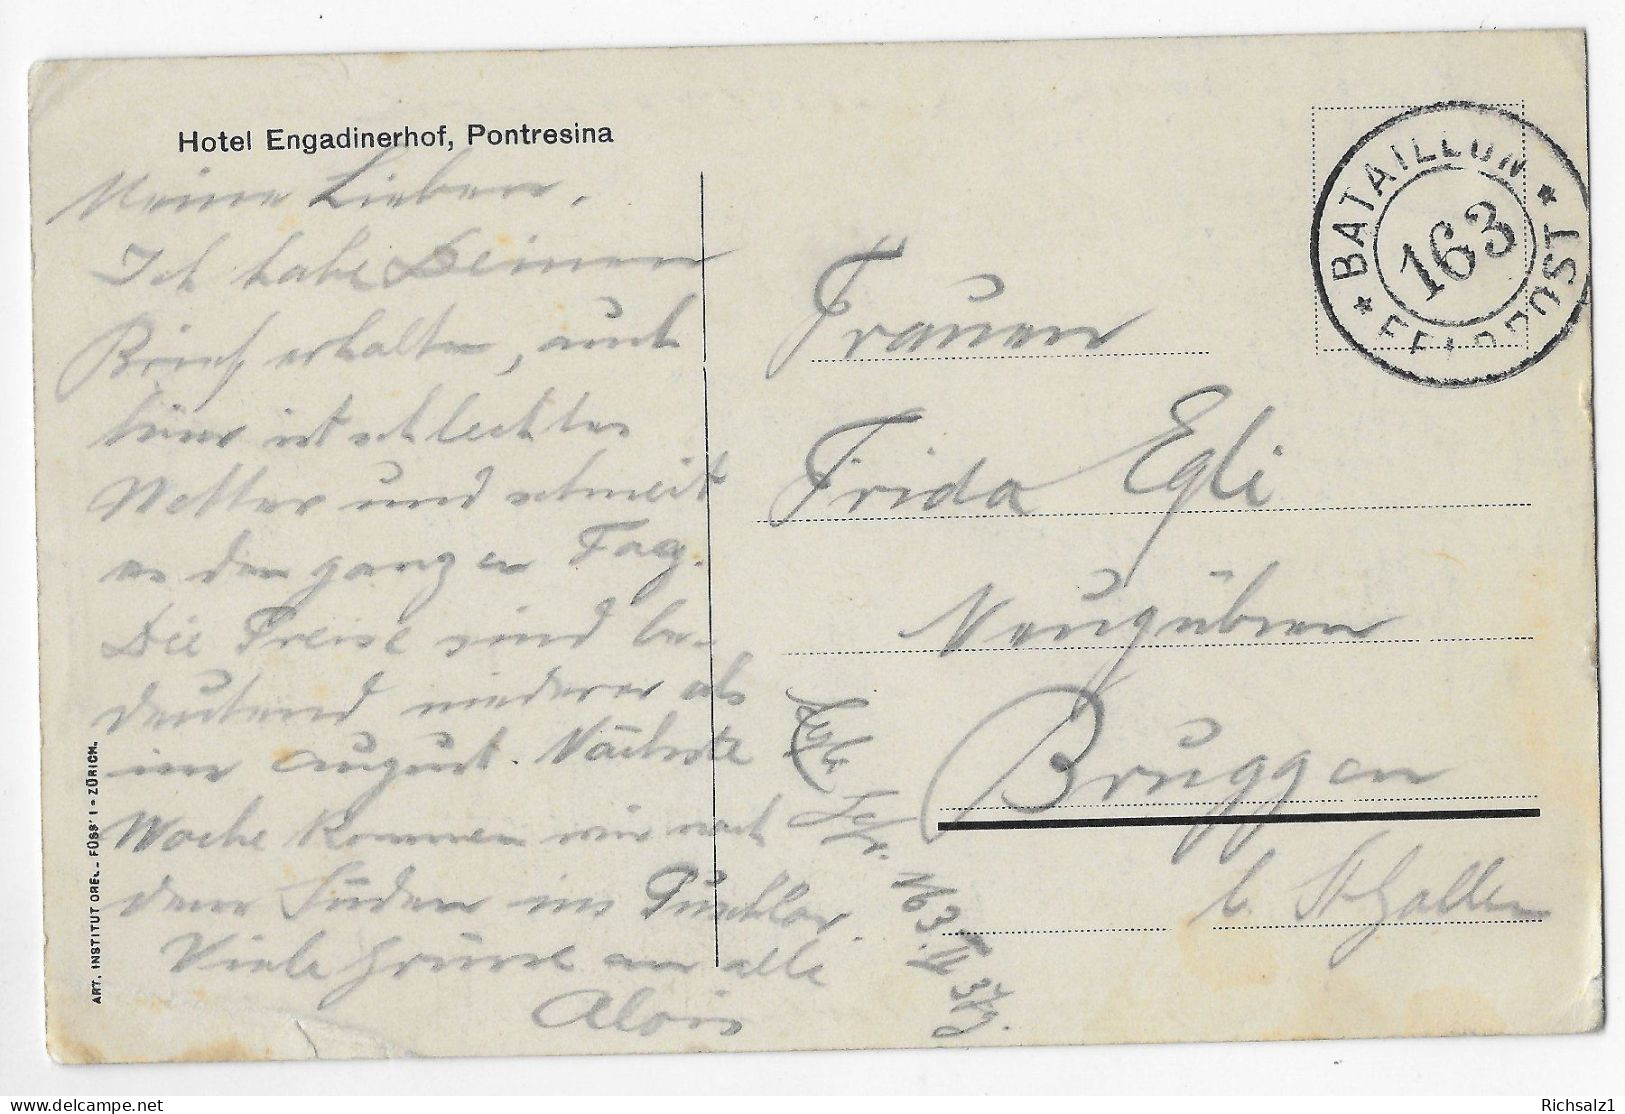 Hotel Engadinerhof, Pontresina
Meine Lieben,
Ich habe Deinen
Brief erhalten, auch
hier ist schlechtes
Wetter und schneit
es den ganzen Tag.
Die Preise sind be-
deutend niederer als
im August. Nächste
Woche kommen wir nach
dem Süden ins Puschlav.
Viele Grüsse an alle
Alois
ART. INSTITUT OREL FÜSSLI - ZÜRICH.
* BATAILLON *
163
FELDPOST
Frauen
Frida Egli
Neugübsen
Bruggen
b. St. Gallen
163
III
Richsalz1